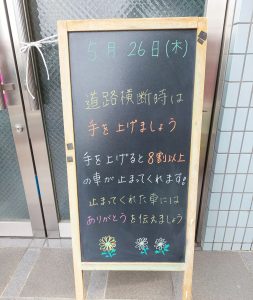 5月26日(木)
道路横断時は
手を上げましょう
手を上げると8割以上
の車が止まってくれます!
止まってくれた車には
ありがとうを伝えましょう